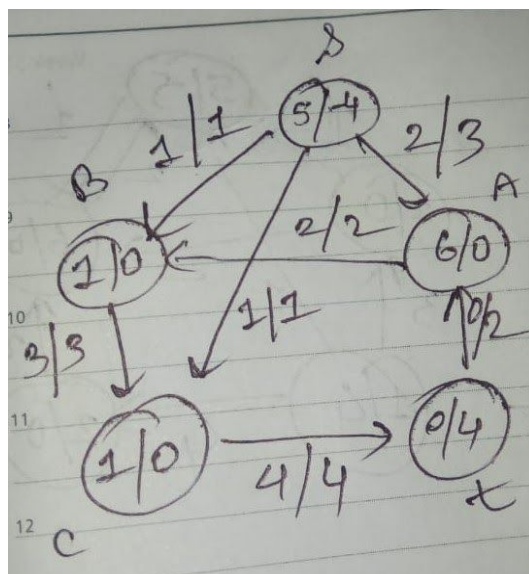 S
5/-4
1/1
2/3
B
A
2/2
1/0
6/0
10
3/3
1/1
0/2
11
1/0
0/4
4/4
t
12
C